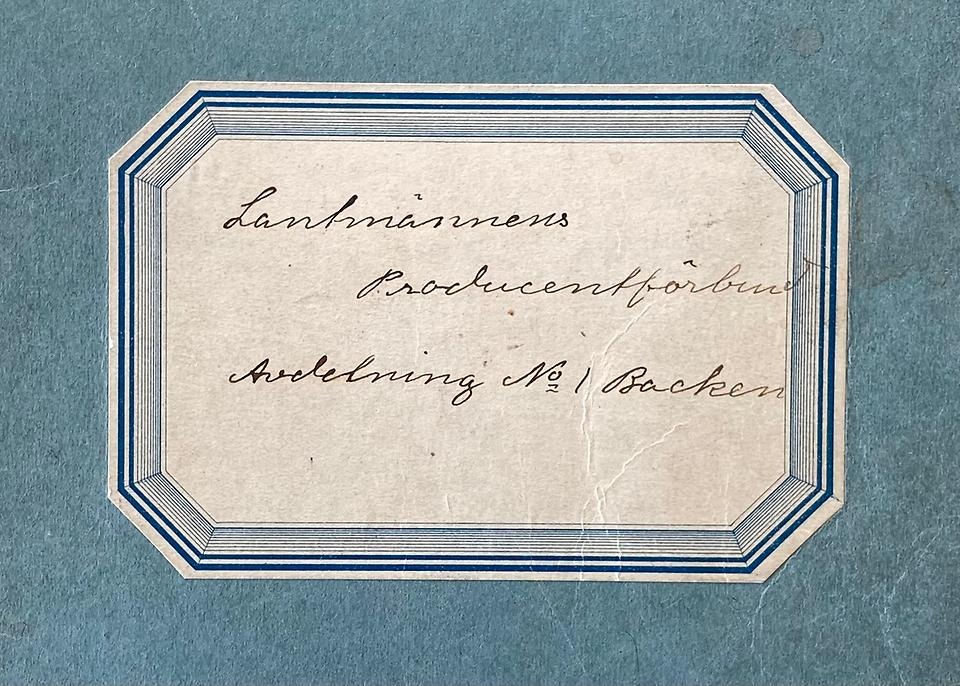 Lantmännens
Producentförbund
Avdelning No 1 Backen